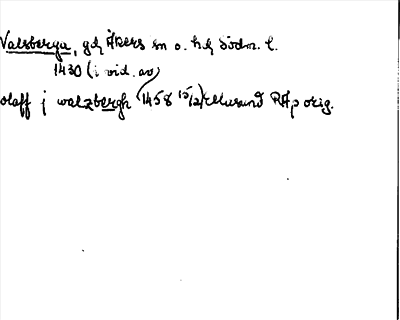 Valsberga, gd, Åkers sn o. hd, Södm. l.
1430 (i vid. av
olaff j walzbergh (1458 15/12) RAp orig.